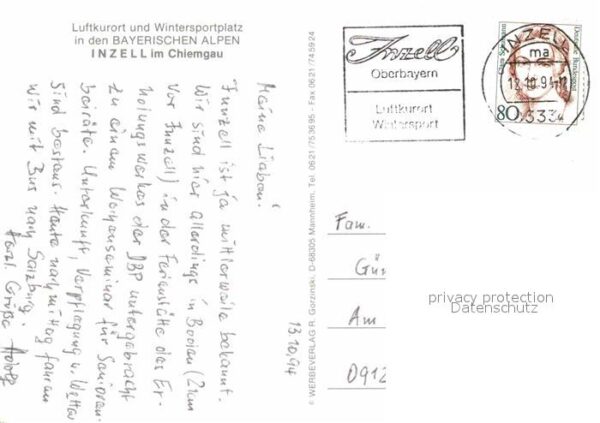 Luftkurort und Wintersportplatz
in den BAYERISCHEN ALPEN
INZELL im Chiemgau
Meine Lieben!
Inzell ist ja mittlerweile bekannt.
Wir sind hier allerdings in (2 km
vor Inzell) in der Ferienstätte des Er-
holungswerkes der DBP untergebracht
zu einem Wochenseminar für Senioren-
beiräte. Unterkunft, Verpflegung u. Wetter
sind bestens. Heute nachmittag fahren
wir mit Bus nach Salzburg.
Herzl. Grüße Adolf
13.10.94
© WERBEVERLAG R. Gorzinski, D-68305 Mannheim, Tel. 0621/753695 - Fax 0621/745924
Inzell
Oberbayern
Luftkurort
Wintersport
INZELL
ma
13.10.94
8333
Clara Schumann
Deutsche Bundespost
80
Fam.
Gün
Am
0912
privacy protection
Datenschutz